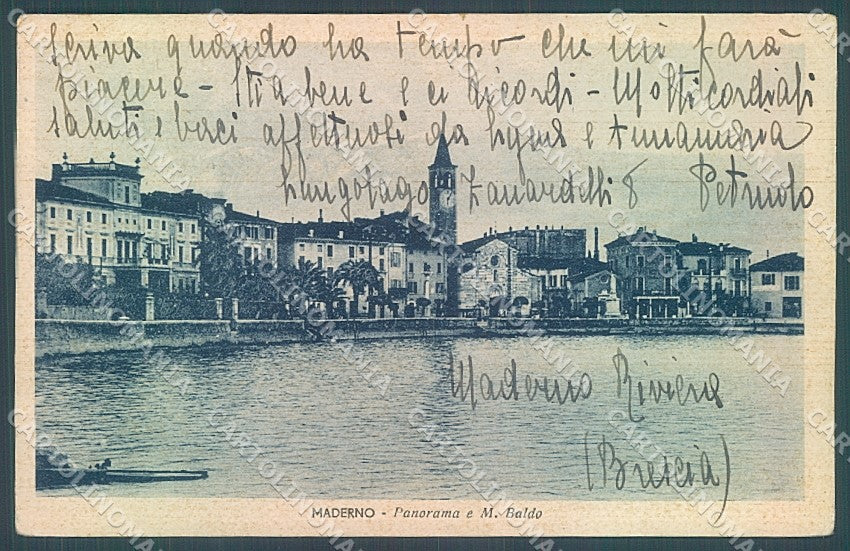 scriva quando ha tempo che mi farà
piacere - Stia bene e ci ricordi - Molti cordiali
saluti e baci affettuosi da e Annamaria
Lungolago Zanardelli 8
Maderno Riviera
(Brescia)
MADERNO - Panorama e M. Baldo
CARTOLINOMANIA